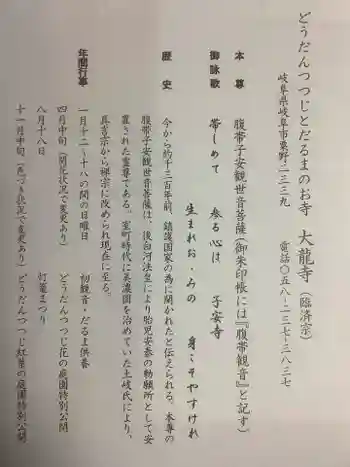 どうだんつつじとだるまのお寺　大龍寺（臨済宗）
岐阜県岐阜市粟野二三三九　電話〇五八-二三七-三八三七
本尊　腹帯子安観世音菩薩（御朱印帳には『腹帯観音』と記す）
御詠歌　帯しめて　参る心は　子安寺
生まれお・みの　身こそやすけれ
歴史　今から約千三百年前、鎮護国家の為に開かれたと伝えられる。本尊の
腹帯子安観世音菩薩は、後白河法皇により胎児安泰の勅願所として安
置された霊尊である。室町時代に美濃国を治めていた土岐氏により、
真言宗から禅宗に改められ現在に至る。
年間行事　一月十二～十八の間の日曜日　初観音・だるま供養
四月中旬（開花状況で変更あり）　どうだんつつじ花の庭園特別公開
八月十八日　灯籠まつり
十一月中旬（色づき状況で変更あり）　どうだんつつじ紅葉の庭園特別公開